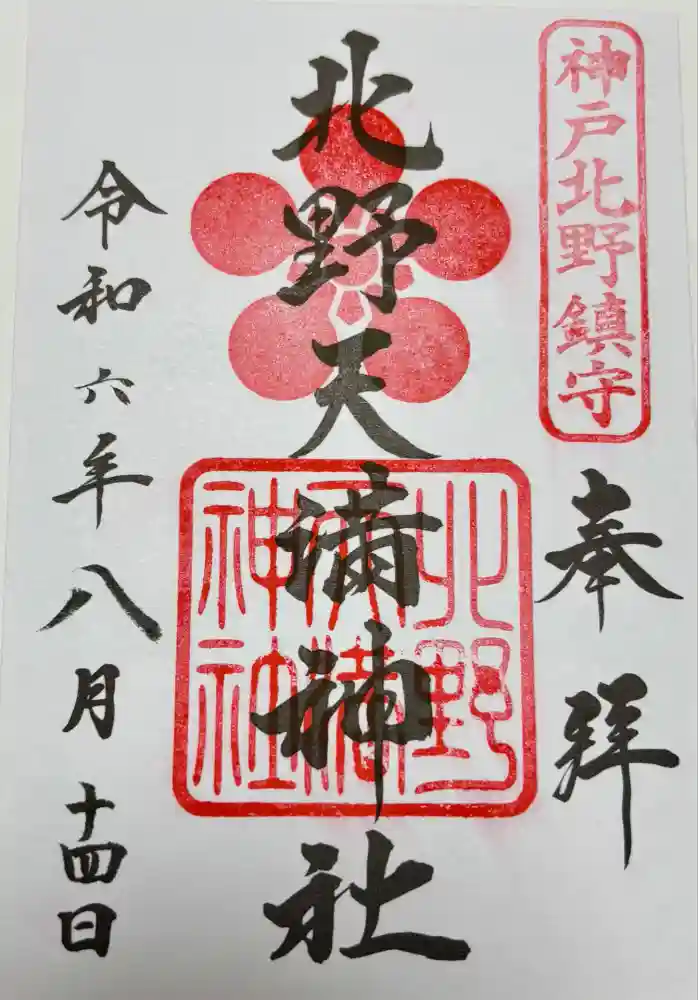 神戸北野鎮守
奉拝
北野天満神社
北野
天満
神社
令和六年八月十四日